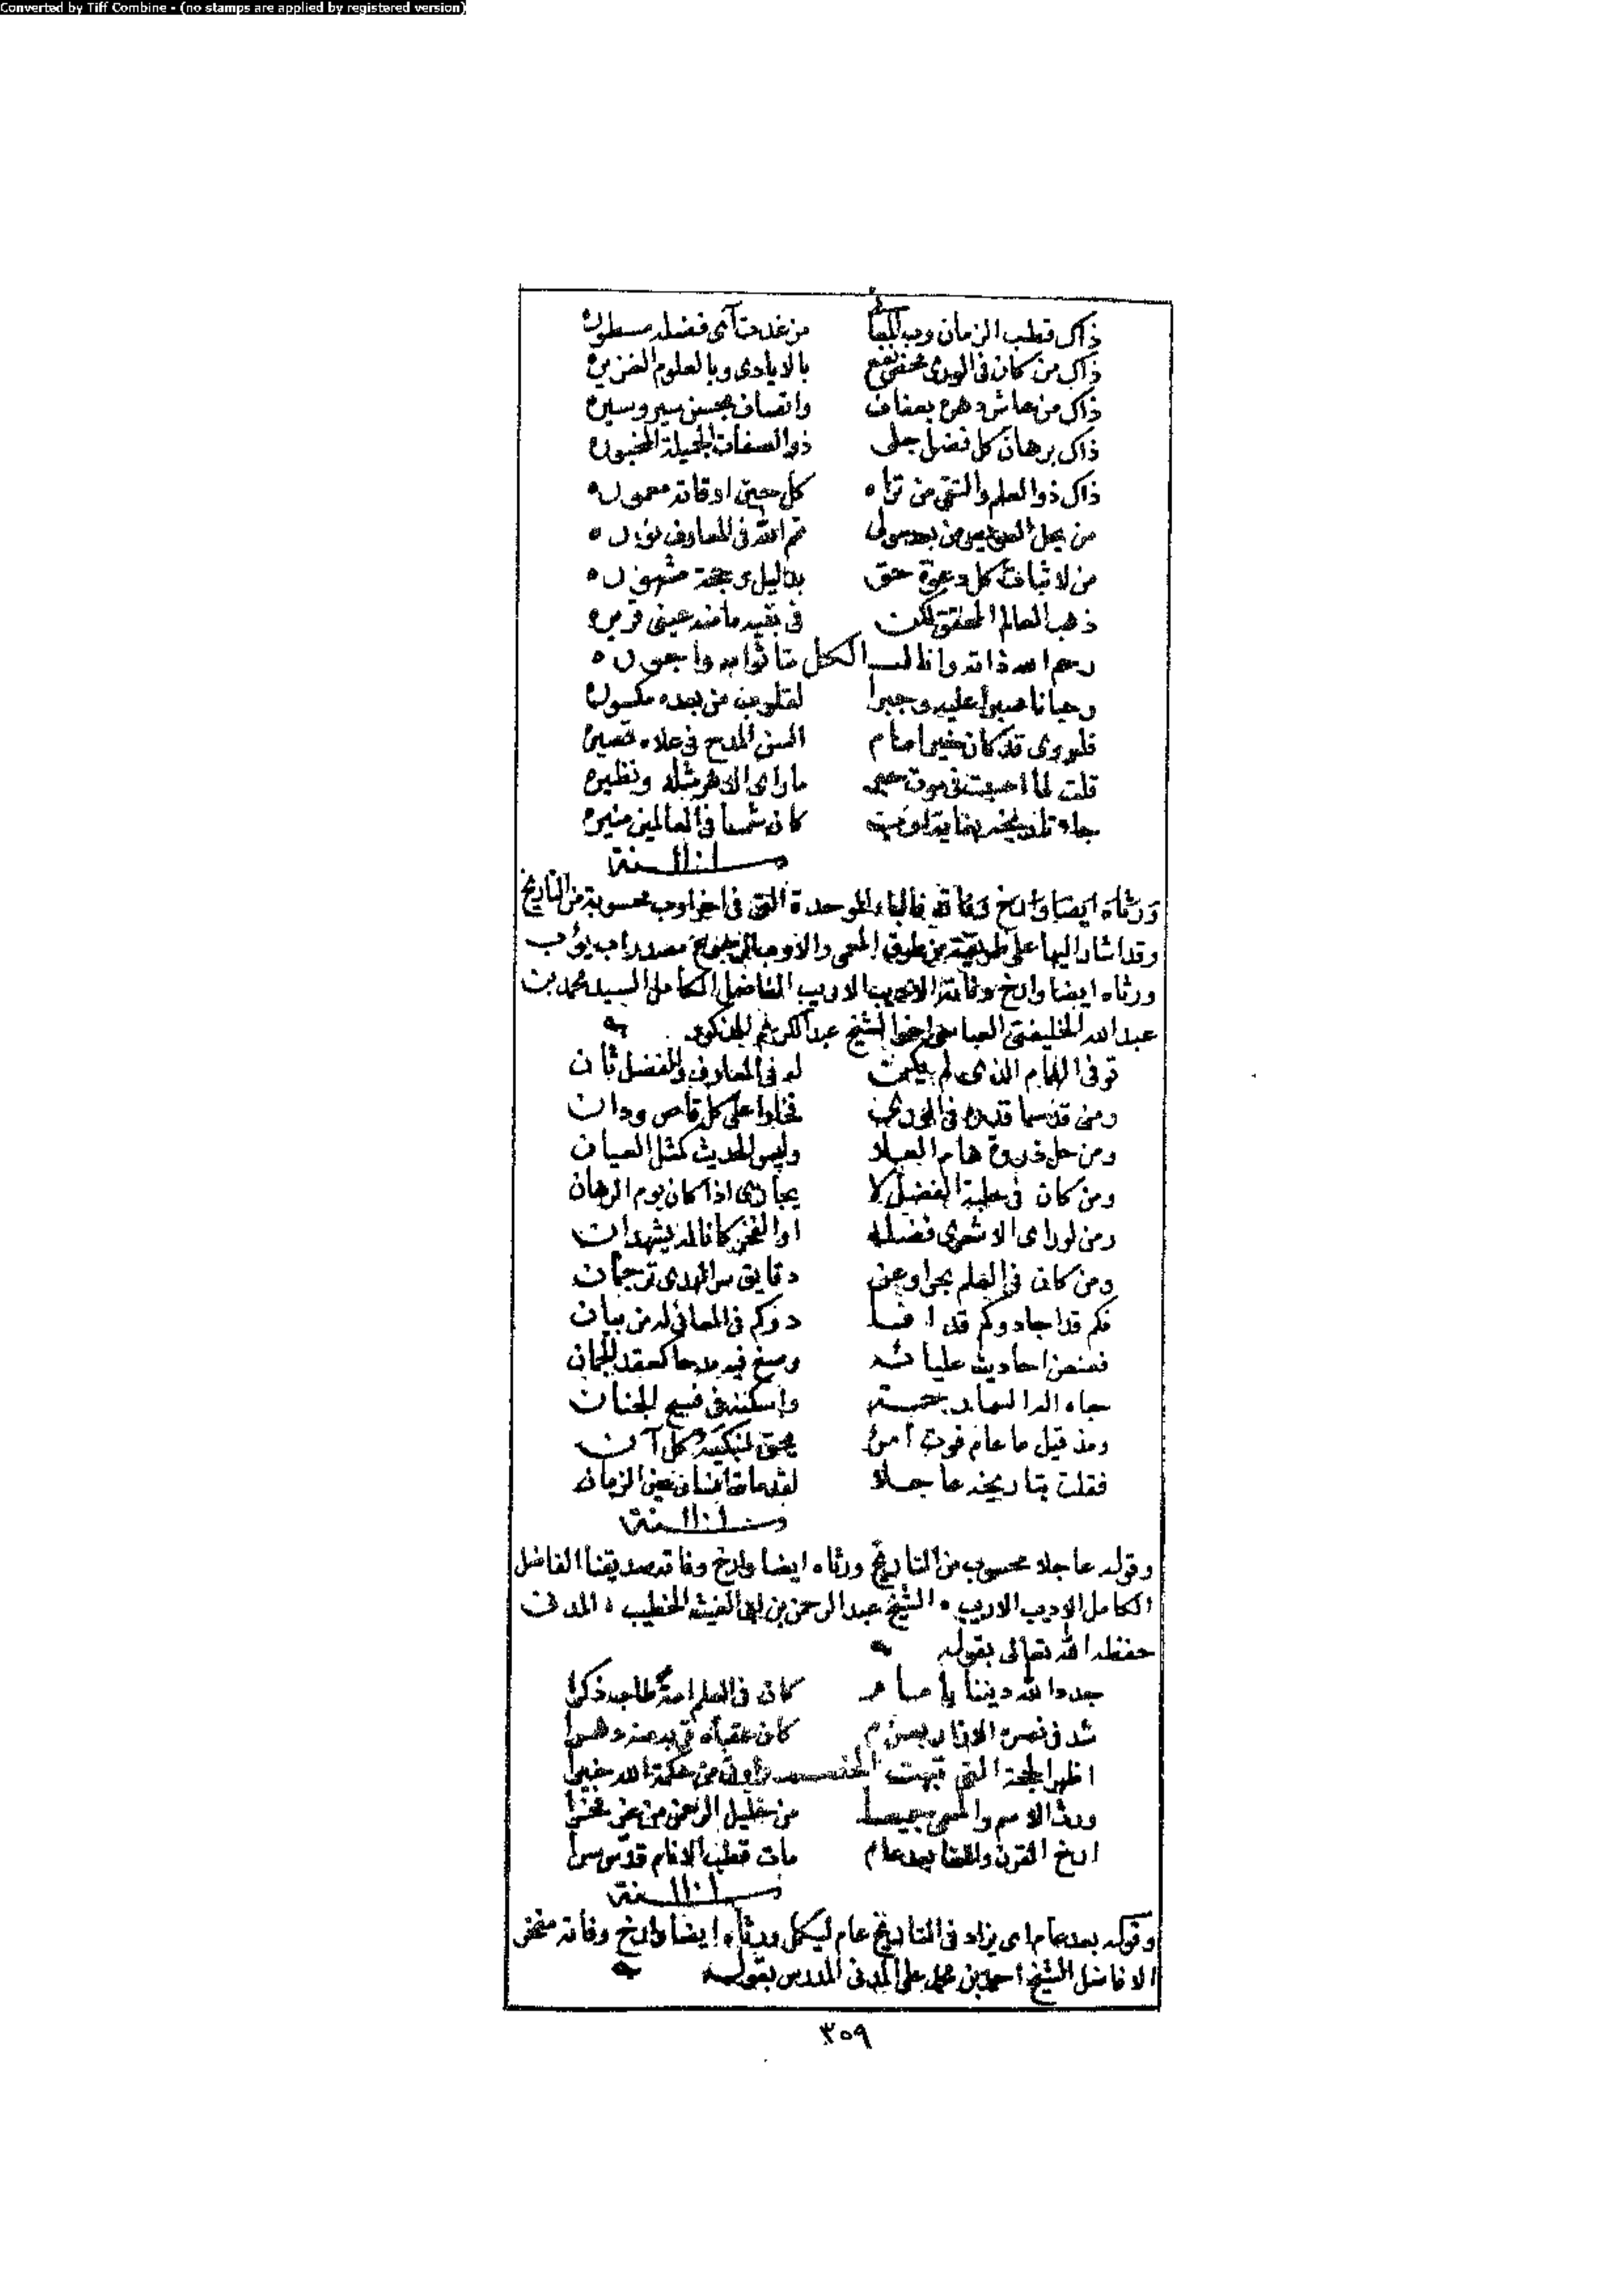 Converted by Tiff Combine - (no stamps are applied by registered version)
ذاك قطب الزمان رب من غدت آى فضله مسطوره
ذاك من كان فى الورى محض نفع بالايادى وبالعلوم الغزيره
ذاك من عاش دهره بعفاف واتصاف بحسن سير وسيره
ذاك برهان كل فضل جلى ذو الصفات الجميلة المخبوره
ذاك ذو العلم والتقى من تراه كل حين اوقاته معموره
من بحل العويص من بعد سولى فى المعارف نوره
من لاثبات كل دعوة حق بدليل وحجة مشهوره
ذهب العالم المحقق لكن فى بقيد ما منه عينى قريره
رحم الله ذاته وانا لـ ـه الكل ثوابه واجوره
وحبانا صبرا عليه وجبرا لقلوب من بعده مكسوره
فلهو قد كان خير امام السن المدح فى علاه قصيره
قلت لما اصبت فى موت حبر ما راى الدهر مثله ونظيره
جاء تاريخه كان شمسا فى العالمين منيره
سنة
ورثاه ايضا وارخ وفاته فالباء الموحدة التى فى اخر محسوبة من التاريخ
وقد اشار اليها على طريقة من طرق المعمى والاوب مصدر اب يؤب
ورثاه ايضا وارخ وفاته الاديب الاريب الفاضل الكامل السيد محمد بن
عبد الله الخليفتى العباسى اخو الشيخ عبد الكريم المذكور
توفى الهمام الذى لم يكن له فى المعارف والفضل ثان
ومن قد سما قدره فى الورى فخارا على كل قاص ودان
ومن حل ذروة هام العلا وليس الحديث كمثل العيان
ومن كان فى حلبة الفضل لا يجارى اذا كان يوم الرهان
ومن لو راى الاشعرى فضله او الفخر كانا له يشهدان
ومن كان فى العلم بحرا وعن دقايق سر الهدى ترجمان
فكم قد اجاد وكم قد افا د وكم فى المعانى له من بيان
فعنعن احاديث عليائه وصغ فيه مدحا كعقد الجمان
حباه اله السما رحمة واسكنه فى فسيح الجنان
ومذ قيل ما عام فوت امرئ يحق لنبكيه كل آن
فقلت بتاريخه عاجلا لقد مات انسان عين الزمان
سنة
وقوله عاجلا محسوب من التاريخ ورثاه ايضا وارخ وفاته صديقنا الفاضل
الكامل الاديب الاريب الشيخ عبد الرحمن بن ابى الغيث الخطيب المدنى
حفظه الله تعالى بقوله
جدد الله ديننا بامام كان فى العلم امة طاب ذكرا
شد فى نصره الازار بعزم كان عقباه فى دهرا
اظهر الحجة التى بهت الخصـ ـم من حكمة الله خبرا
ورث الاسم والمسمى جميعا من خليل الرحمن من عز فخرا
ارخ القرن بعد عام مات قطب الانام قدس سرا
سنة
وقوله بعد عام اى يزاد فى التاريخ عام ليكمل ورثاه ايضا وارخ وفاته
الافاضل الشيخ احمد بن على المدنى المدرس بقوله
٣٥٩